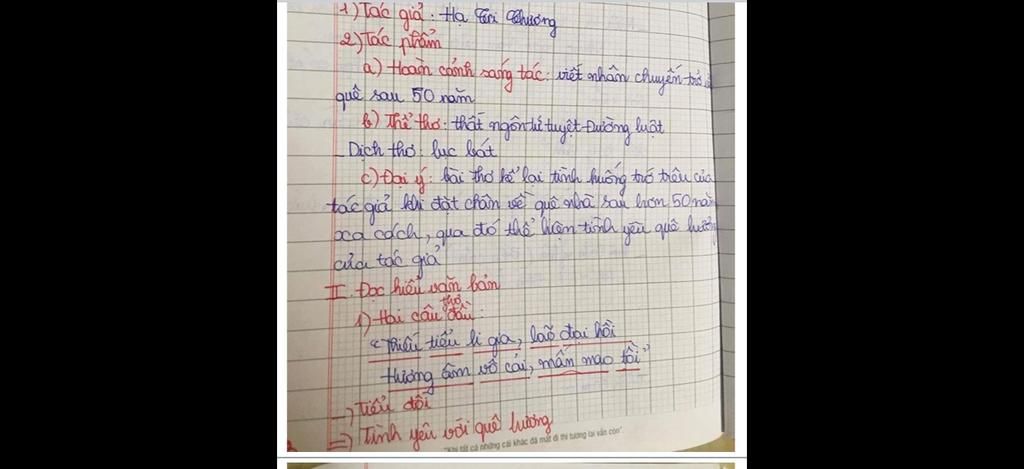 1) Tác giả: Hạ Tri Chương
2) Tác phẩm
a) Hoàn cảnh sáng tác: viết nhân chuyến trở
quê sau 50 năm
b) Thể thơ: thất ngôn tứ tuyệt Đường luật
- Dịch thơ: lục bát
c) Đại ý: bài thơ kể lại tình huống trớ trêu của
tác giả khi đặt chân về quê nhà sau hơn 50 năm
xa cách, qua đó thể hiện tình yêu quê hương
của tác giả
II. Đọc hiểu văn bản
1) Hai câu thơ đầu:
"Thiếu tiểu li gia, lão đại hồi
Hương âm vô cải, mấn mao tồi"
=> Tiểu đối
=> Tình yêu với quê hương
"Khi tất cả những cái khác đã mất đi thì tương lai vẫn còn"